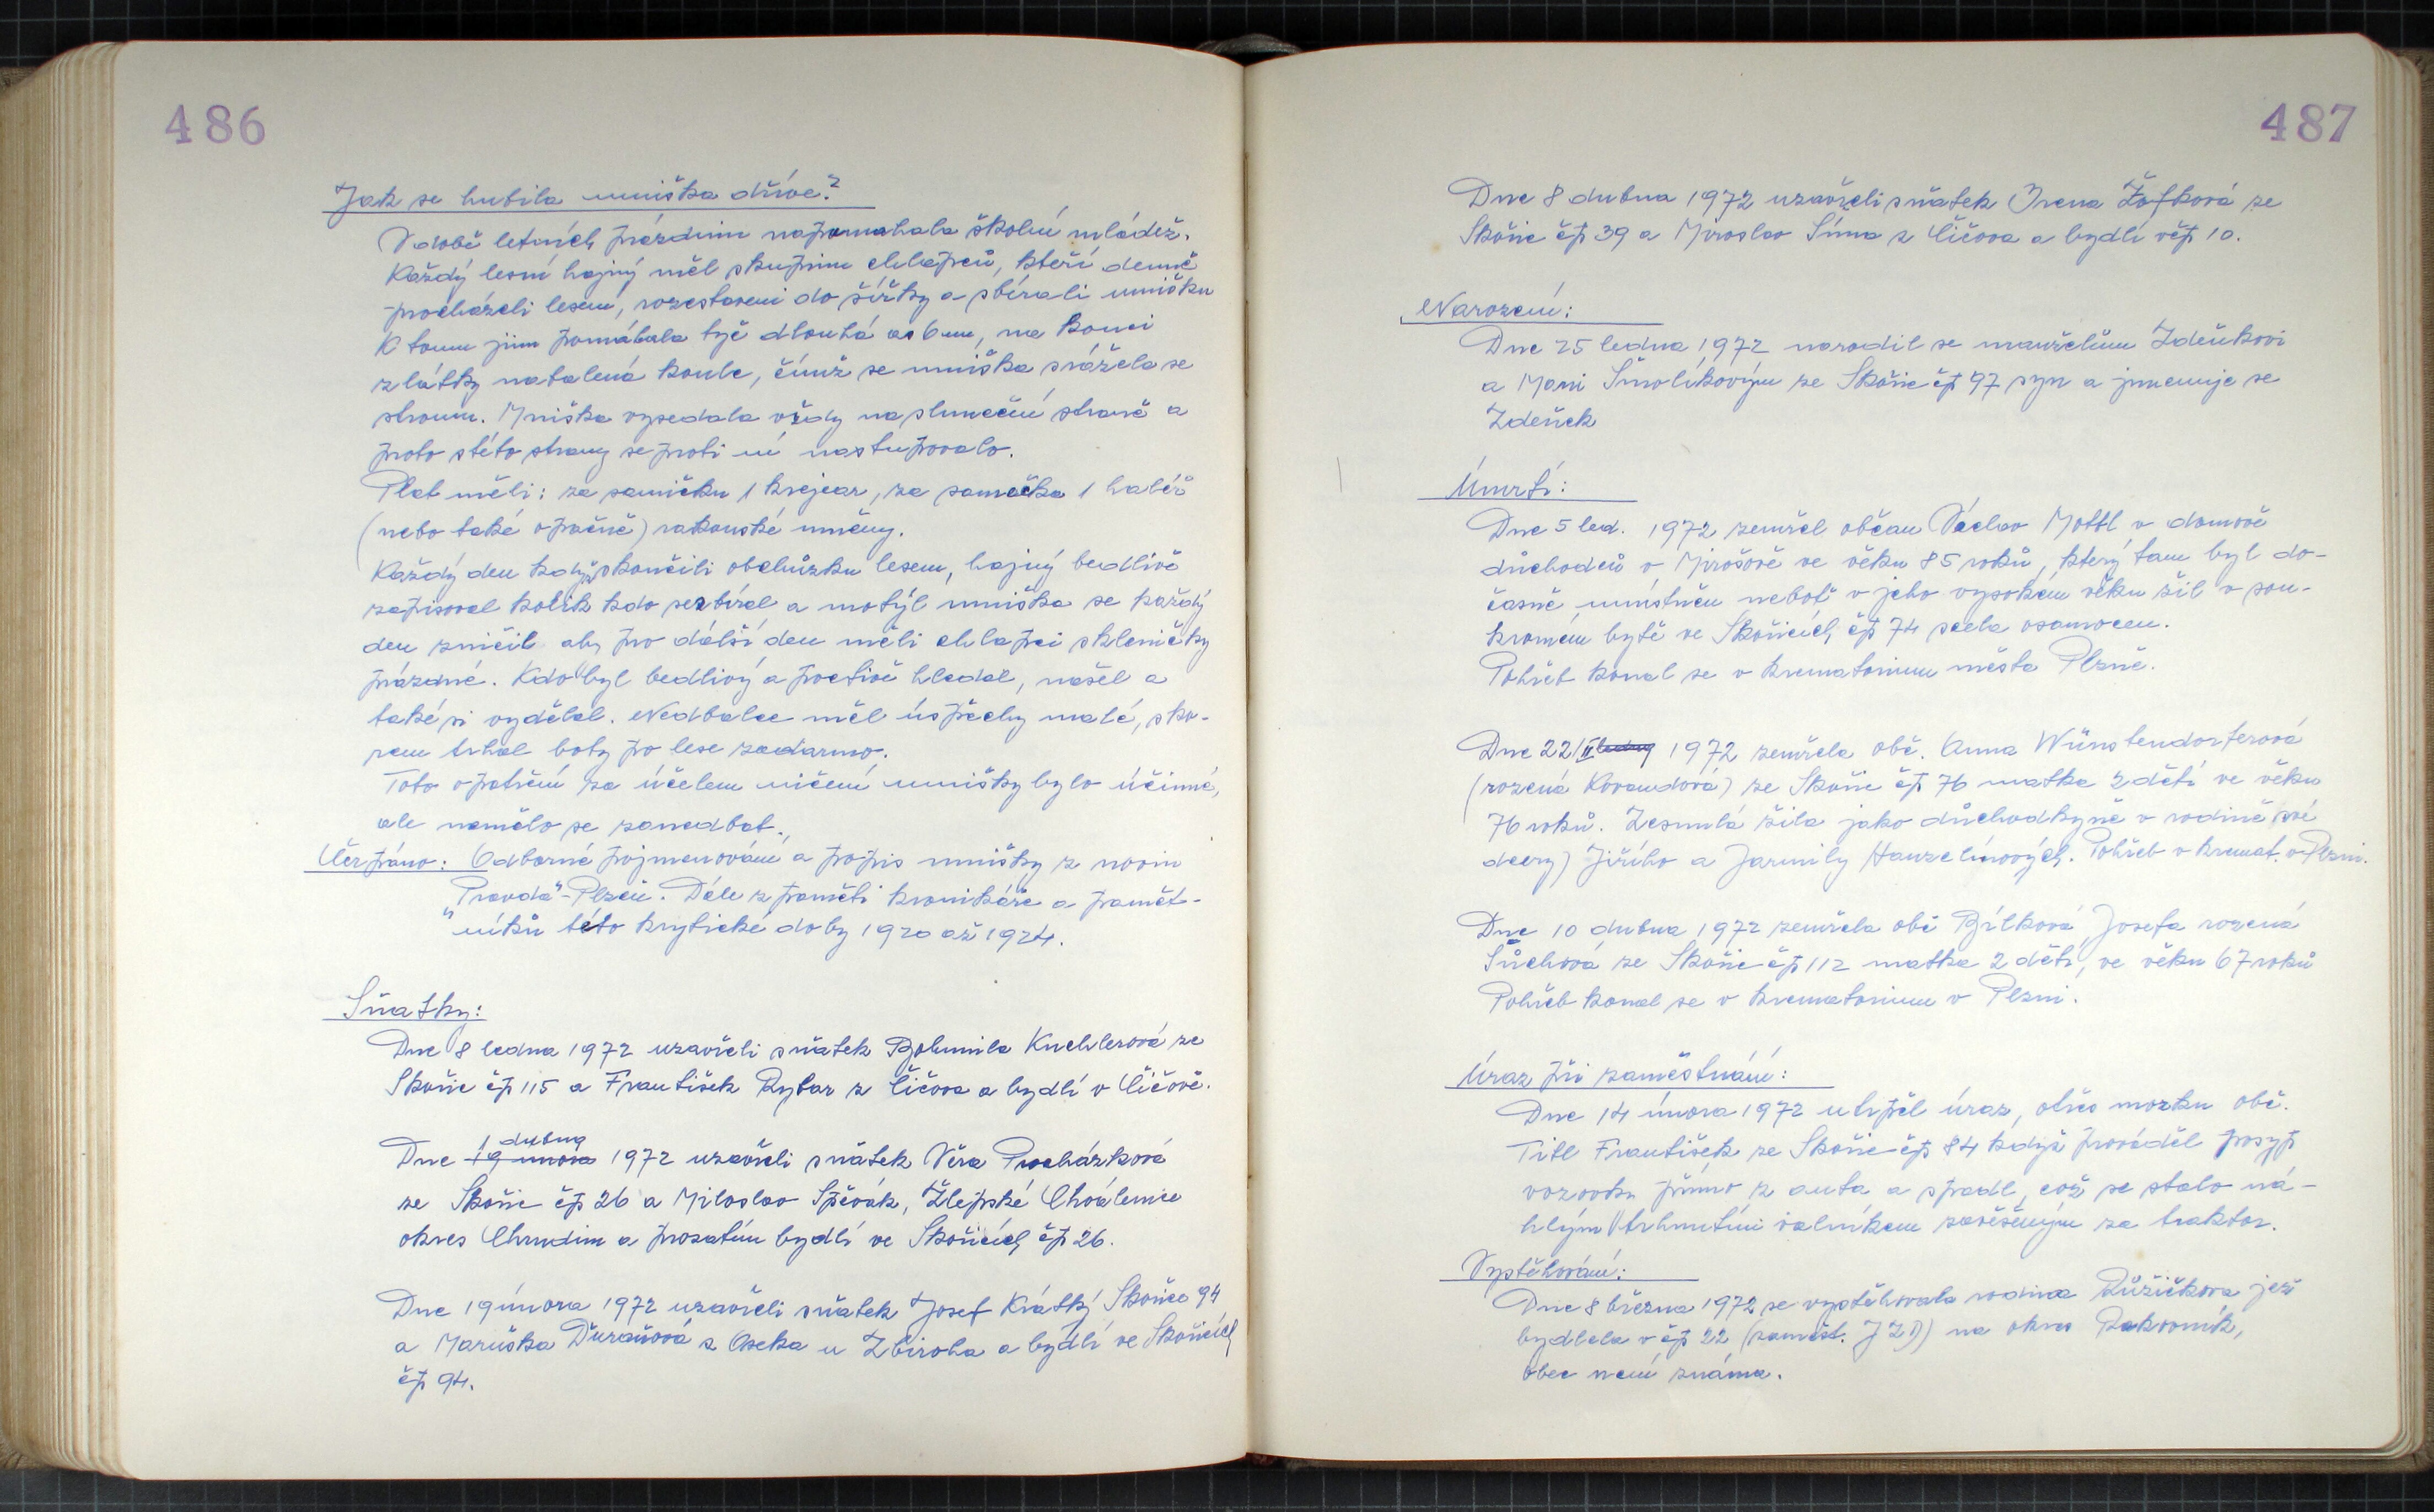 486
Jak se hubila mniška dříve?
V době letních prázdnin napomahala školní mládež.
Každý lesní hajný měl skupinu chlapců, kteří denně
procházeli lesem, rozestaveni do šířky a sbírali mnišku
K tomu jim pomáhala tyč dlouhá as 6 m, na konci
z látky natalená koule, čímž se mniška srážela se
stromu. Mniška vysedala vždy na sluneční straně a
proto s této strany se proti ní nastupovalo.
Plat měli: za samičku 1 krejcar, za samečka 1 haléř
(nebo také opačně) rakouské měny.
Každý den když skončili obchůzku lesem, hajný bedlivě
zapisoval kolik kdo sezbíral a motýl mniška se každý
den zničil aby pro dálší den měli chlapci skleničky
prázdné. Kdo byl bedlivý a poctivě hledal, našel a
také si vydělal. Nedbalec měl úspěchy malé, sko-
rem trhal boty po lese zadarmo.
Toto opatření za účelem ničení mnišky bylo účinné,
ale nemělo se zanedbat.
Čerpáno: Odborné pojmenování a popis mnišky z novin
"Pravda"-Plzeň. Dále z paměti kronikáře a pamět-
níků této krytické doby 1920 až 1924.
Sňatky:
Dne 8 ledna 1972 uzavřeli sňatek Bohumila Kuchlerová ze
Skořic čp 115 a František Rybar z Číčova a bydlí v Číčově.
1 dubna
Dne 19 února 1972 uzavřeli sňatek Věra Procházková
ze Skořic čp 26 a Miloslav Spěvák, Žlepské Chválenice
okres Chrudim a prozatím bydlí ve Skořicích čp 26.
Dne 19 února 1972 uzavřeli sňatek Josef Krátký Skořice 94
a Maruška Ďuraňová z Oseka u Zbiroha a bydlí ve Skořicích
čp 94.
487
Dne 8 dubna 1972 uzavřeli sňatek Irena Žofková ze
Skořic čp 39 a Miroslav Šíma z Číčova a bydlí v čp 10.
Narození:
Dne 25 ledna 1972 narodil se manželům Zdeňkovi
a Marii Šmolíkovým ze Skořic čp 97 syn a jmenuje se
Zdeněk
Úmrtí:
Dne 5 led. 1972 zemřel občan Václav Mottl v domově
důchodců v Mirošově ve věku 85 roků, který tam byl do-
časně umístněn neboť v jeho vysokém věku žil v sou-
kromém bytě ve Skořicích čp 74 scela osamocen.
Pohřeb konal se v krematorium města Plzně.
Dne 22/II ledna 1972 zemřela obč. Anna Wünstendorferová
(rozená Kovandová) ze Skořic čp 76 matka 2 dětí ve věku
76 roků. Zesnulá žila jako důchodkyně v rodině své
dcery) Jiřího a Jarmily Hanzelínových. Pohřeb v kremat. v Plzni.
Dne 10 dubna 1972 zemřela obč Bílková Josefa rozená
Šůchová ze Skořic čp 112 matka 2 dětí, ve věku 67 roků
Pohřeb konal se v krematorium v Plzni.
Úraz při zaměstnání:
Dne 14 února 1972 utrpěl úraz, otřes mozku obč.
Titl František ze Skořic čp 84 když prováděl posyp
vozovky přímo z auta a spadl, což se stalo ná-
hlým trhnutím valníkem zavěšeným za traktor.
Vystěhování:
Dne 8 března 1972 se vystěhovala rodina Růžičkova jež
bydlela v čp 22 (zaměst. JZD) na okres Rakovník,
obec není známa.